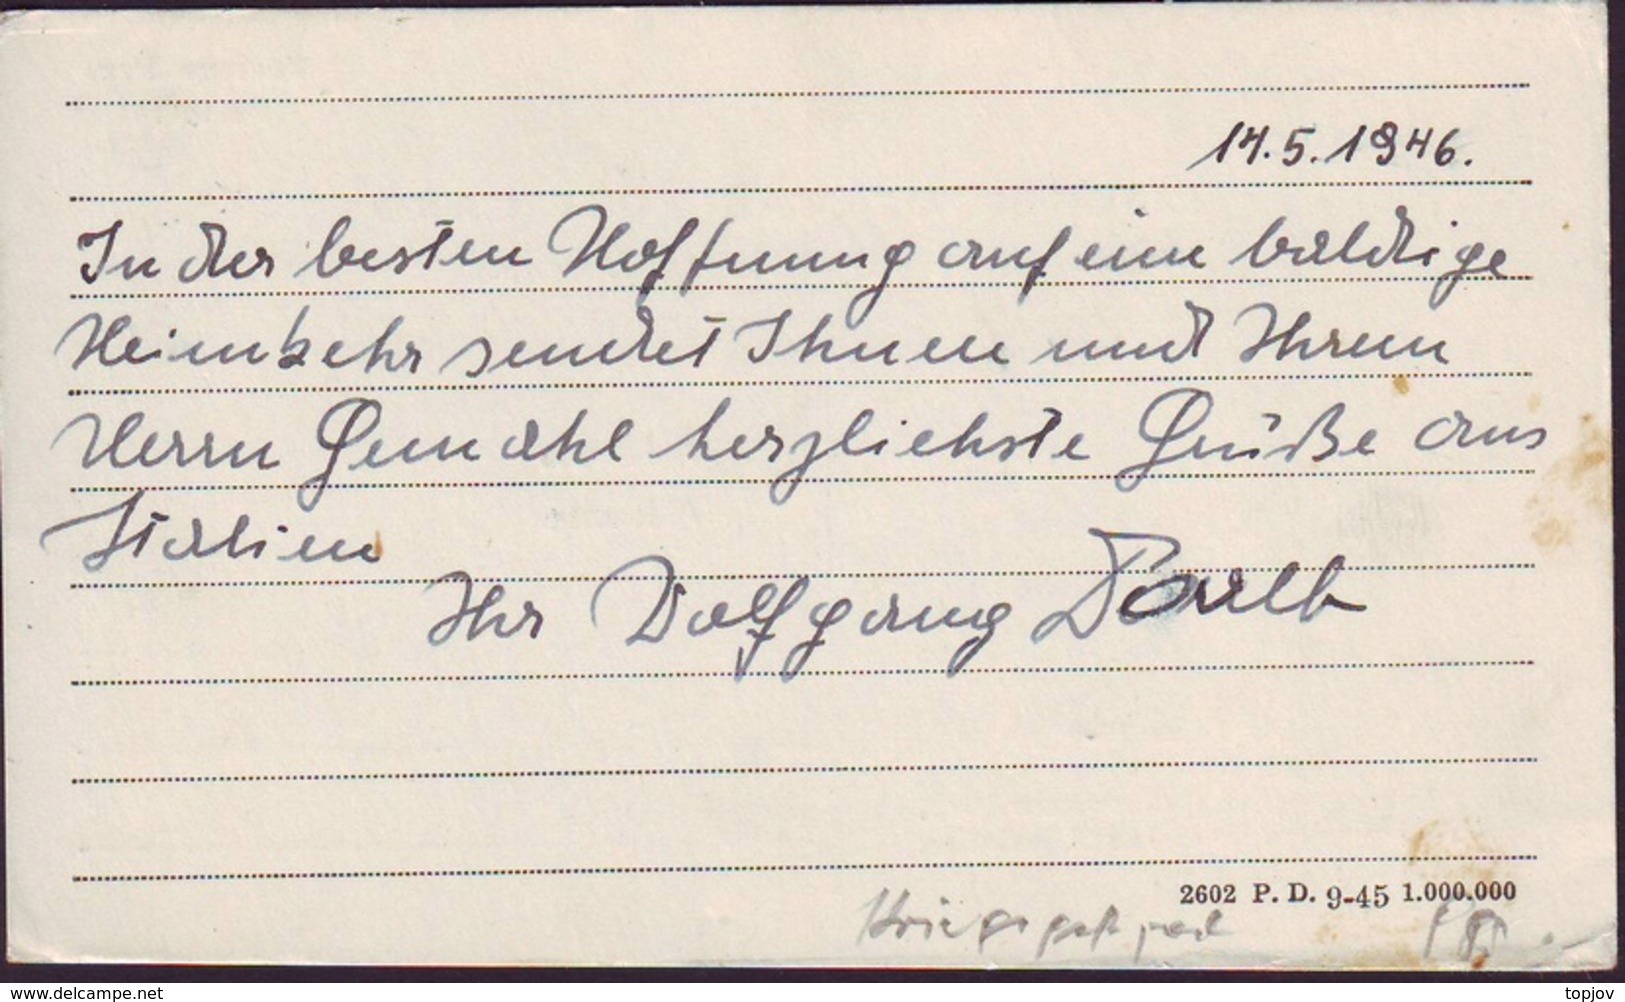 14.5.1946.
In der besten Hoffnung auf eine baldige
Heimkehr sendet Ihnen und Ihrem
Herrn Gemahl herzlichste Grüße aus
Italien
Ihr Wolfgang
2602 P. D. 9-45 1.000.000
delcampe.net
topjov